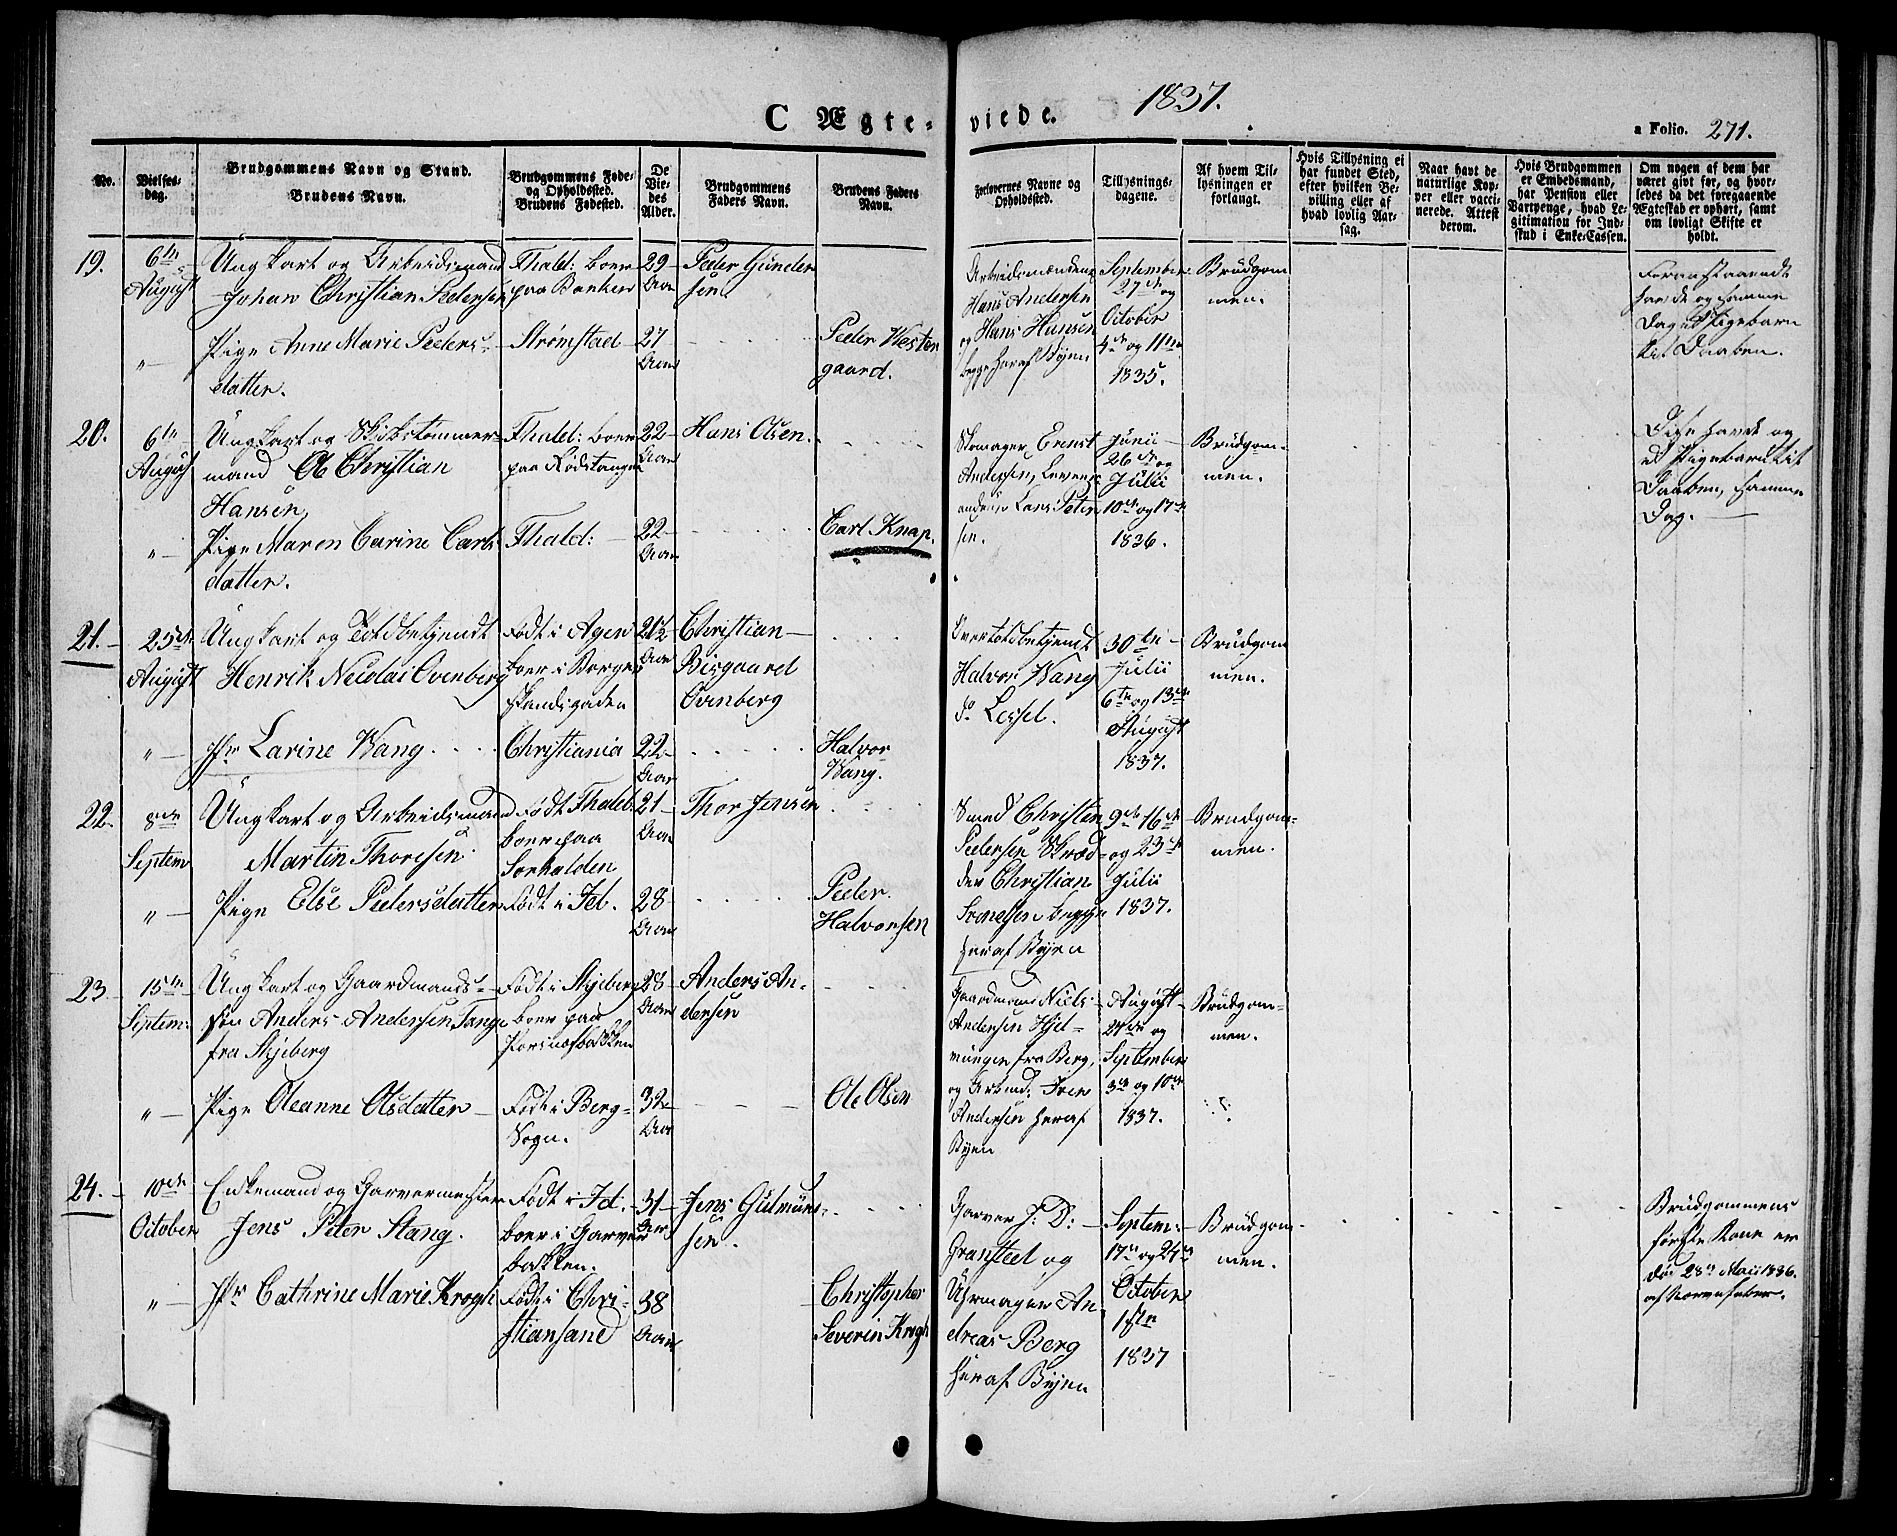 C Ægte-viede. 1837.
a Folio. 271.
No.
Vielses-
dag.
Brudgommens Navn og Stand.
Brudens Navn.
Brudgommens Føde-
og Opholdssted.
Brudens Fødested.
De
Vie-
des
Alder.
Brudgommens
Faders Navn.
Brudens Faders
Navn.
Forlovernes Navne og
Opholdssted.
Tillysnings-
dagene.
Af hvem Til-
lysningen er
forlangt.
Hvis Tillysning ei
har fundet Sted,
efter hvilken Be-
villing eller af
hvad lovlig Aar-
sag.
Naar havt de
naturlige Kop-
per eller vacci-
nerede. Attest
derom.
Hvis Brudgommen
er Embedsmand,
har Pension eller
Vartpenge, hvad Le-
gitimation for Ind-
skud i Enke-Cassen.
Om nogen af dem har
været gift før, og hvor-
ledes da det foregaaende
Ægteskab er ophørt, samt
om lovligt Skifte er
holdt.
19.
6te
August
Ungkarl og Arbeidsmand
Johan Christian Pedersen
Fhald: boer
paa Banken
29
Aar
Peder Gunder
sen
Arbeidsmændene
Hans Andersen
og Hans Hansen
begge heraf Byen
September
27de og
October
4de og 11te
1835.
Brudgom
men.
Foranstaaende
havde og samme
Dag et Pigebarn
til Daaben.
" Pige Anne Marie Peders-
datter.
Strømstad
27
Aar
Peder Wester
gaard.
20.
6te
August
Ungkarl og Skibstømmer-
mand Ole Christian
Hansen
Fhald: boer
paa Rødstangen
22
Aar
Hans Olsen.
Skomager Ernst
Andersen,
Lars Peter
sen.
Junii
26de og
Julii
10de og 17de
1836.
Brudgom-
men.
Disse havde og
et Pigebarn til
Daaben, samme
Dag.
" Pige Maren Carine Carls
datter.
Fhald:
22
Aar
Carl Knap.
21.
25de
August
Ungkarl og Toldbetjendt
Henrik Nicolai Ovenberg
Født i Agen
boer i Borger
skandsgaden
21½
Aar
Christian
Bisgaard
Ovenberg
Overtoldbetjendt
Halvor Wang
do Lessel.
30te
Julii
6te og 13de
August
1837.
Brudgom
men.
" Jfr Larine Wang
Christiania
22
Aar
Halvor
Wang.
22.
8de
Septem
Ungkarl og Arbeidsmand
Martin Thoresen
Født Fhald:
boer paa
Sørhalden
21
Aar
Thor Jensen
Smed Christen
Pedersen Skræd-
der Christian
begge
heraf Byen
9de 16de
og 23de
Julii
1837.
Brudgom-
men.
" Pige Else Pedersdatter
Født i Id.
28
Aar
Peder
Halvorsen
23
15te
Septem:
Ungkarl og Gaardmands-
søn Anders Andersen Tange
fra Skjeberg
Født i Skjeberg
boer paa
Porsnæsbakken
28
Aar
Anders An-
dersen
Gaardmand Niels
Andersen Hjel-
mungen fra Berg,
og Arbmd: Iver
Andersen heraf
Byen
August
27de og
September
3de og 10de
1837.
Brudgom-
men.
" Pige Oleanne Olsdatter
Født i Berg-
Sogn.
32
Aar
Ole Olsen
24.
10de
October
Enkemand og Garvermester
Jens Peter Stang.
Født i Id.
boer i Garver
bakken.
31
Aar
Jens Gulmun-
sen.
Garver P: D:
Gransteel og
Uhrmager An
dreas Berg
heraf Byen
Septem:
17de og 24de
October
1ste
1837
Brudgom
men.
Brudgommens
første Kone er
død 28de Mai 1836.
" Jfr Cathrine Marie Krogh
Født i Chri-
stiansand
38
Aar
Christopher
Severin Krogh